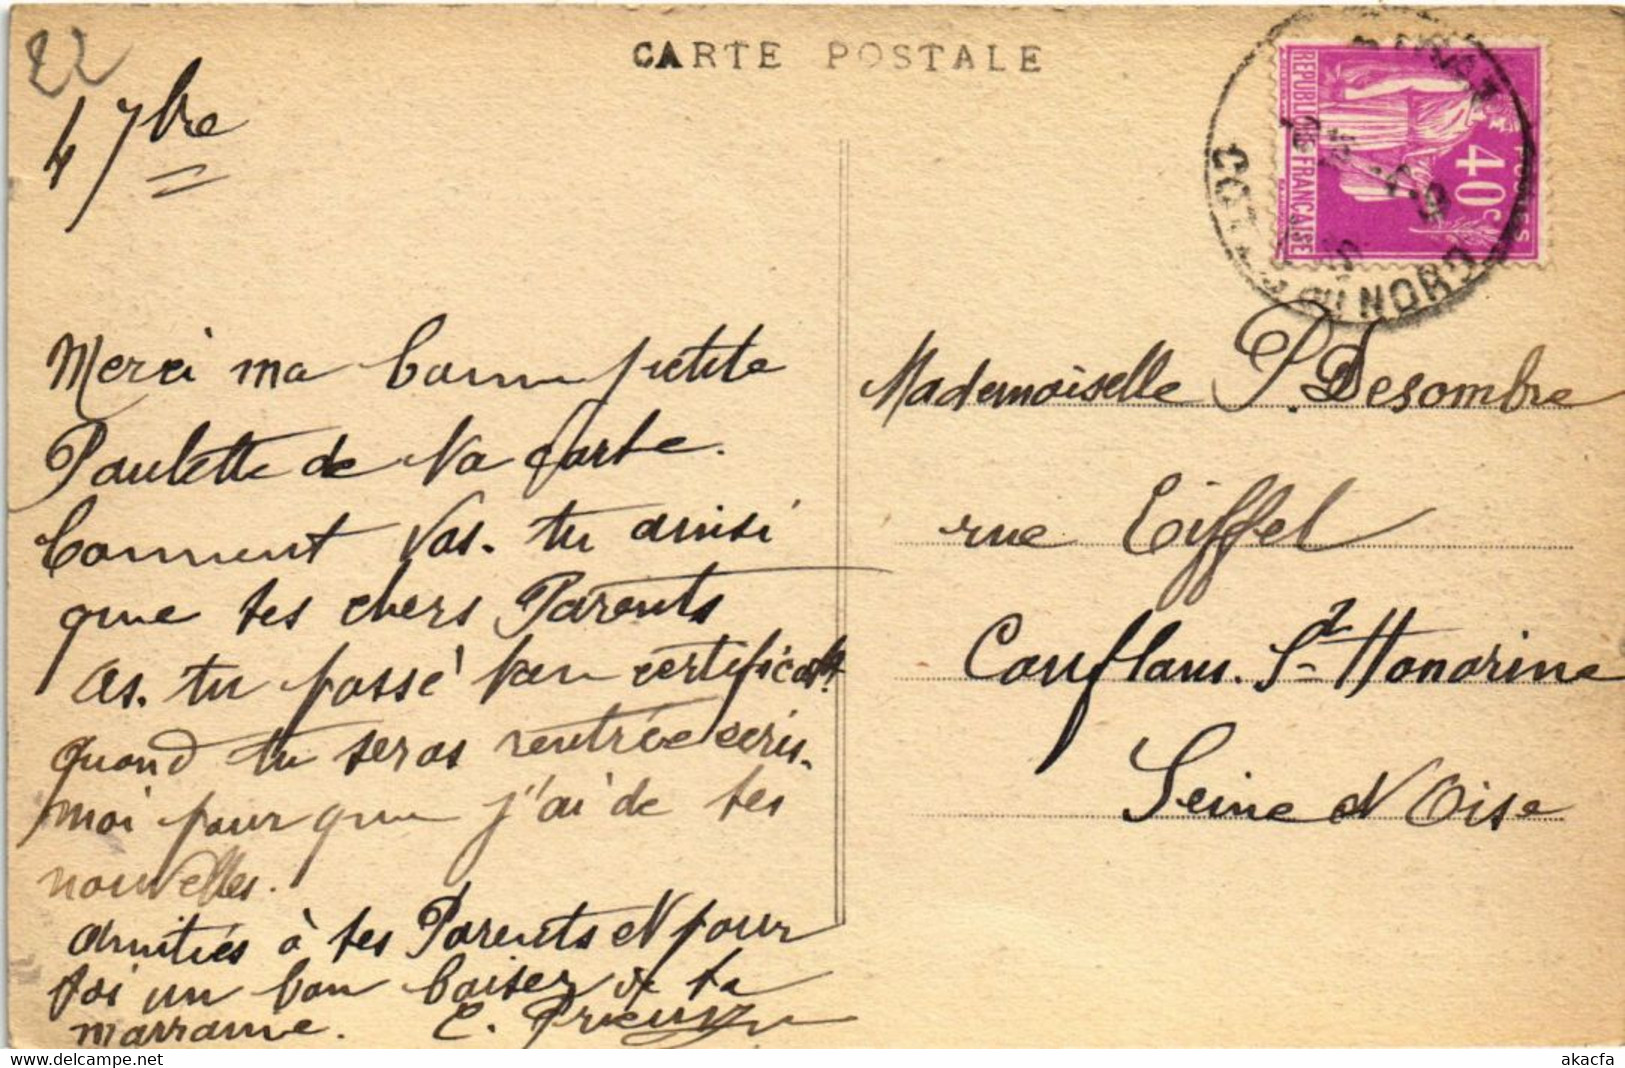 22
CARTE POSTALE
4 7bre
REPUBLIQUE FRANCAISE
40c
POSTES
COTES DU NORD
Merci ma bonne petite
Paulette de ta carte.
Comment vas-tu ainsi
que tes chers Parents
As-tu passé ton certificat
quand tu seras rentrée écris-
moi pour que j'ai de tes
nouvelles.
Amitiés à tes Parents et pour
toi un bon baiser de ta
marraine.
Mademoiselle P. Desombre
rue Eiffel
Conflans. Ste Honorine
Seine et Oise
akacfa